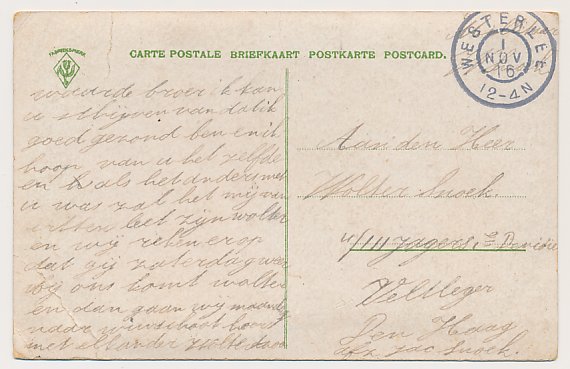 FABRIEKSMERK
CARTE POSTALE BRIEFKAART POSTKARTE POSTCARD.
WESTERLEE
1
NOV
16
12-4N
waarde broer ik kan
u schrijven van dat ik
goed gezond ben en ik
hoop van u het zelfde
en als het anders met
u was zal het mij van
hartten leet zijn wolter
en wij reken er op
dat gij zaterdag weer
bij ons komt wolter
en dan gaan wij maandag
naar winschoot hoor
met elkander
Aan den Heer
Wolter Snoek.
4/III Jagers, 1e Devisie
Veltleger
Den Haag
afz Jac Snoek.